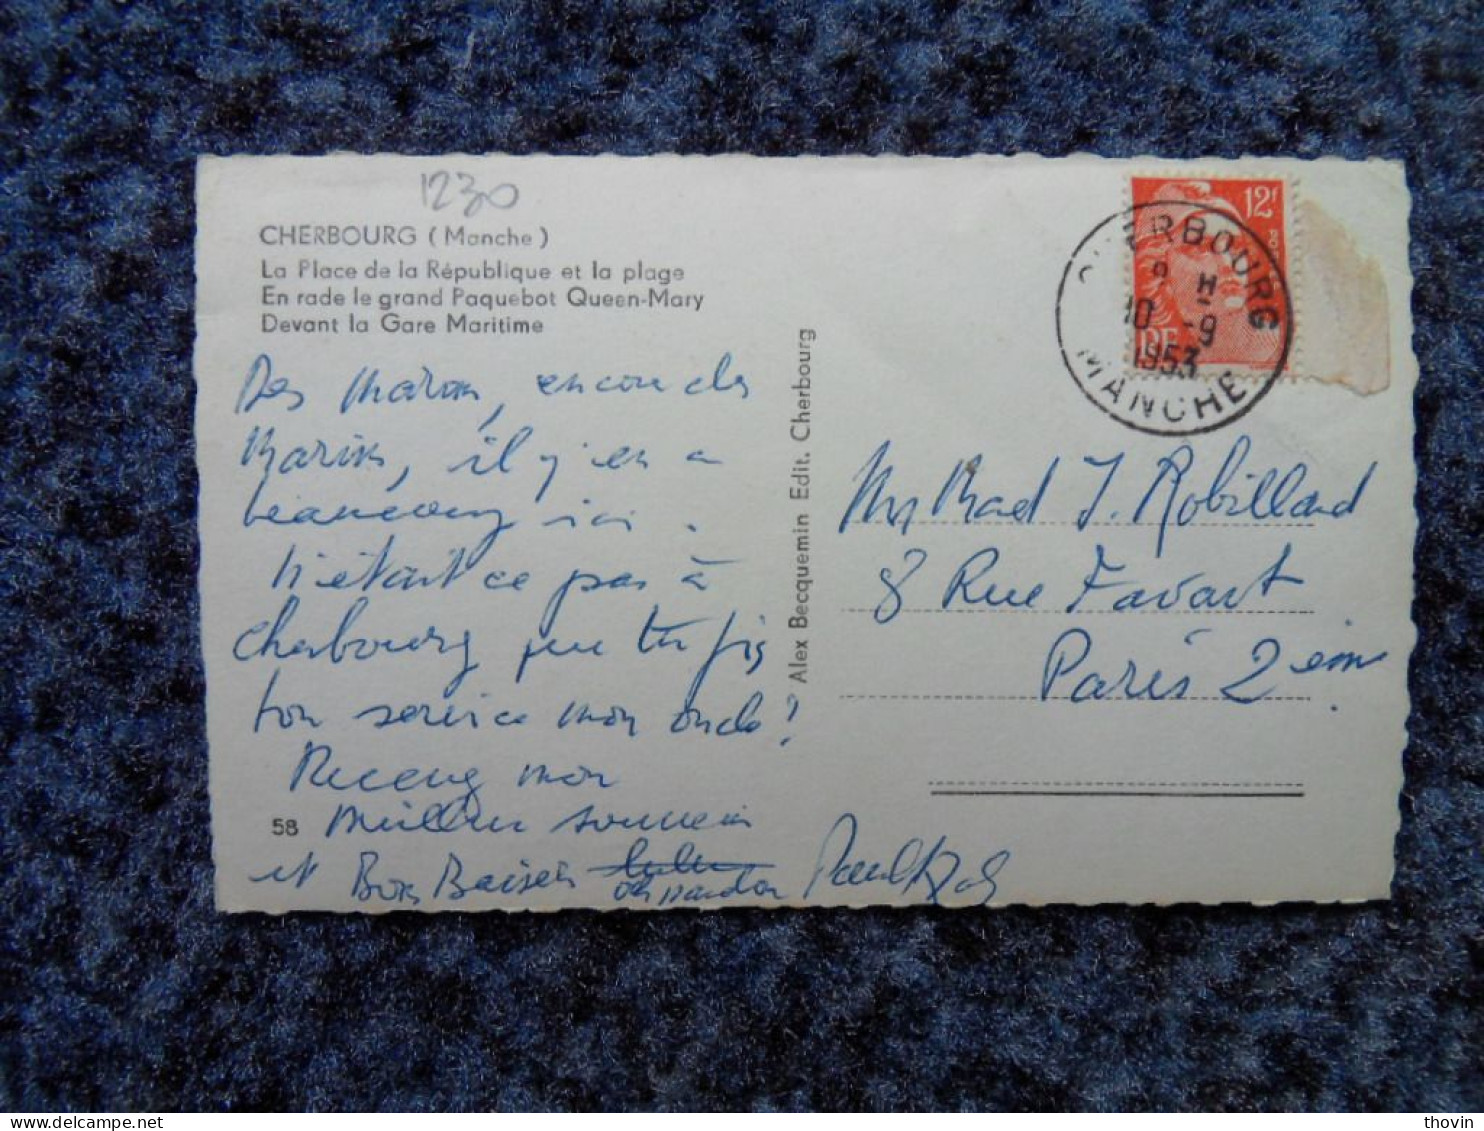 1230
CHERBOURG (Manche)
La Place de la République et la plage
En rade le grand Paquebot Queen-Mary
Devant la Gare Maritime
Des marins, encore des
marins, il y en a
beaucoup ici.
N'était ce pas à
Cherbourg que tu fis
ton service mon oncle?
Recevez mon
meilleur souvenir
et Bons Baisers
oh pardon
58
Alex Becquemin Edit. Cherbourg
12F
RF
CHERBOURG
8 H
10 -9
1953
MANCHE
Mr Mad J. Robillard
8 Rue Favart
Paris 2ème
thovin